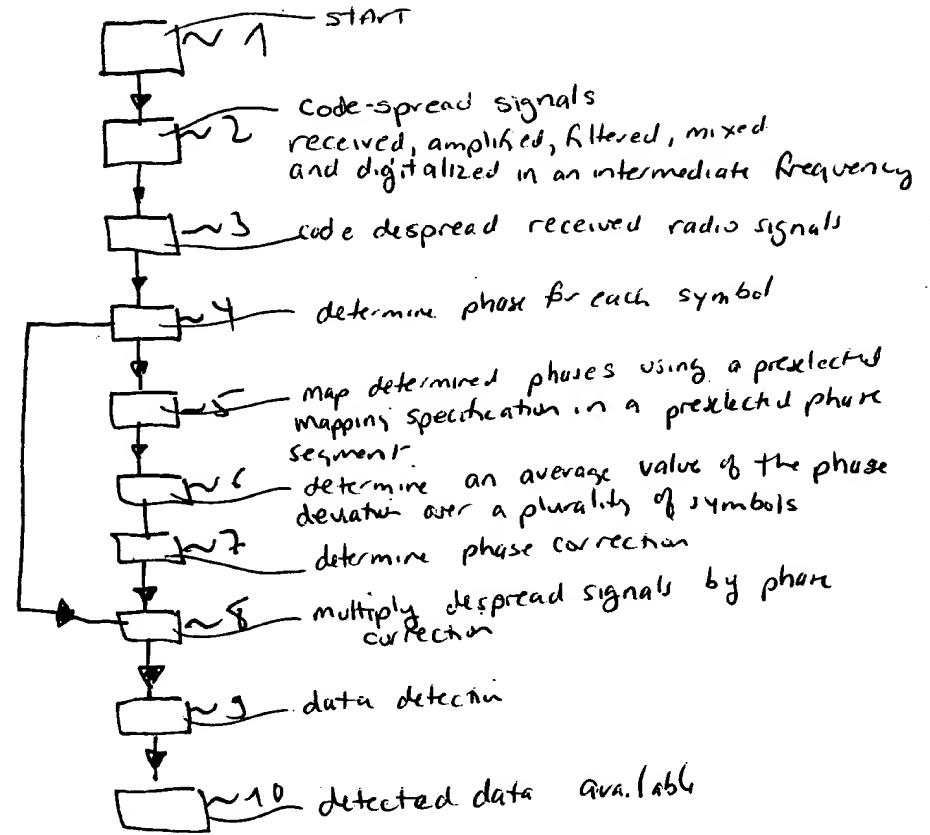 START
~ 1
code-spread signals
~ 2
received, amplified, filtered, mixed
and digitalized in an intermediate frequency
~ 3
code despread received radio signals
~ 4
determine phase for each symbol
map determined phases using a preselected
~ 5
mapping specification in a preselected phase
segment
~ 6
determine an average value of the phase
deviation over a plurality of symbols
~ 7
determine phase correction
~ 8
multiply despread signals by phase
correction
~ 9
data detection
~ 10
detected data available